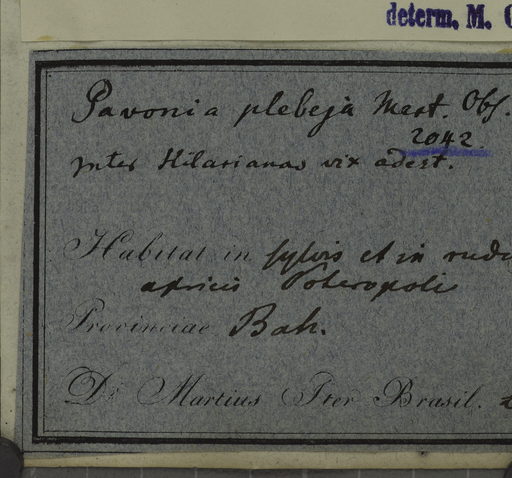 determ. M.
Pavonia plebeja Mart. Obs.
2042.
inter Hilarianas vix adest.
Habitat in sylvis et in
apricis Soteropoli
Provinciae Bah.
Dr. Martius Iter Brasil.